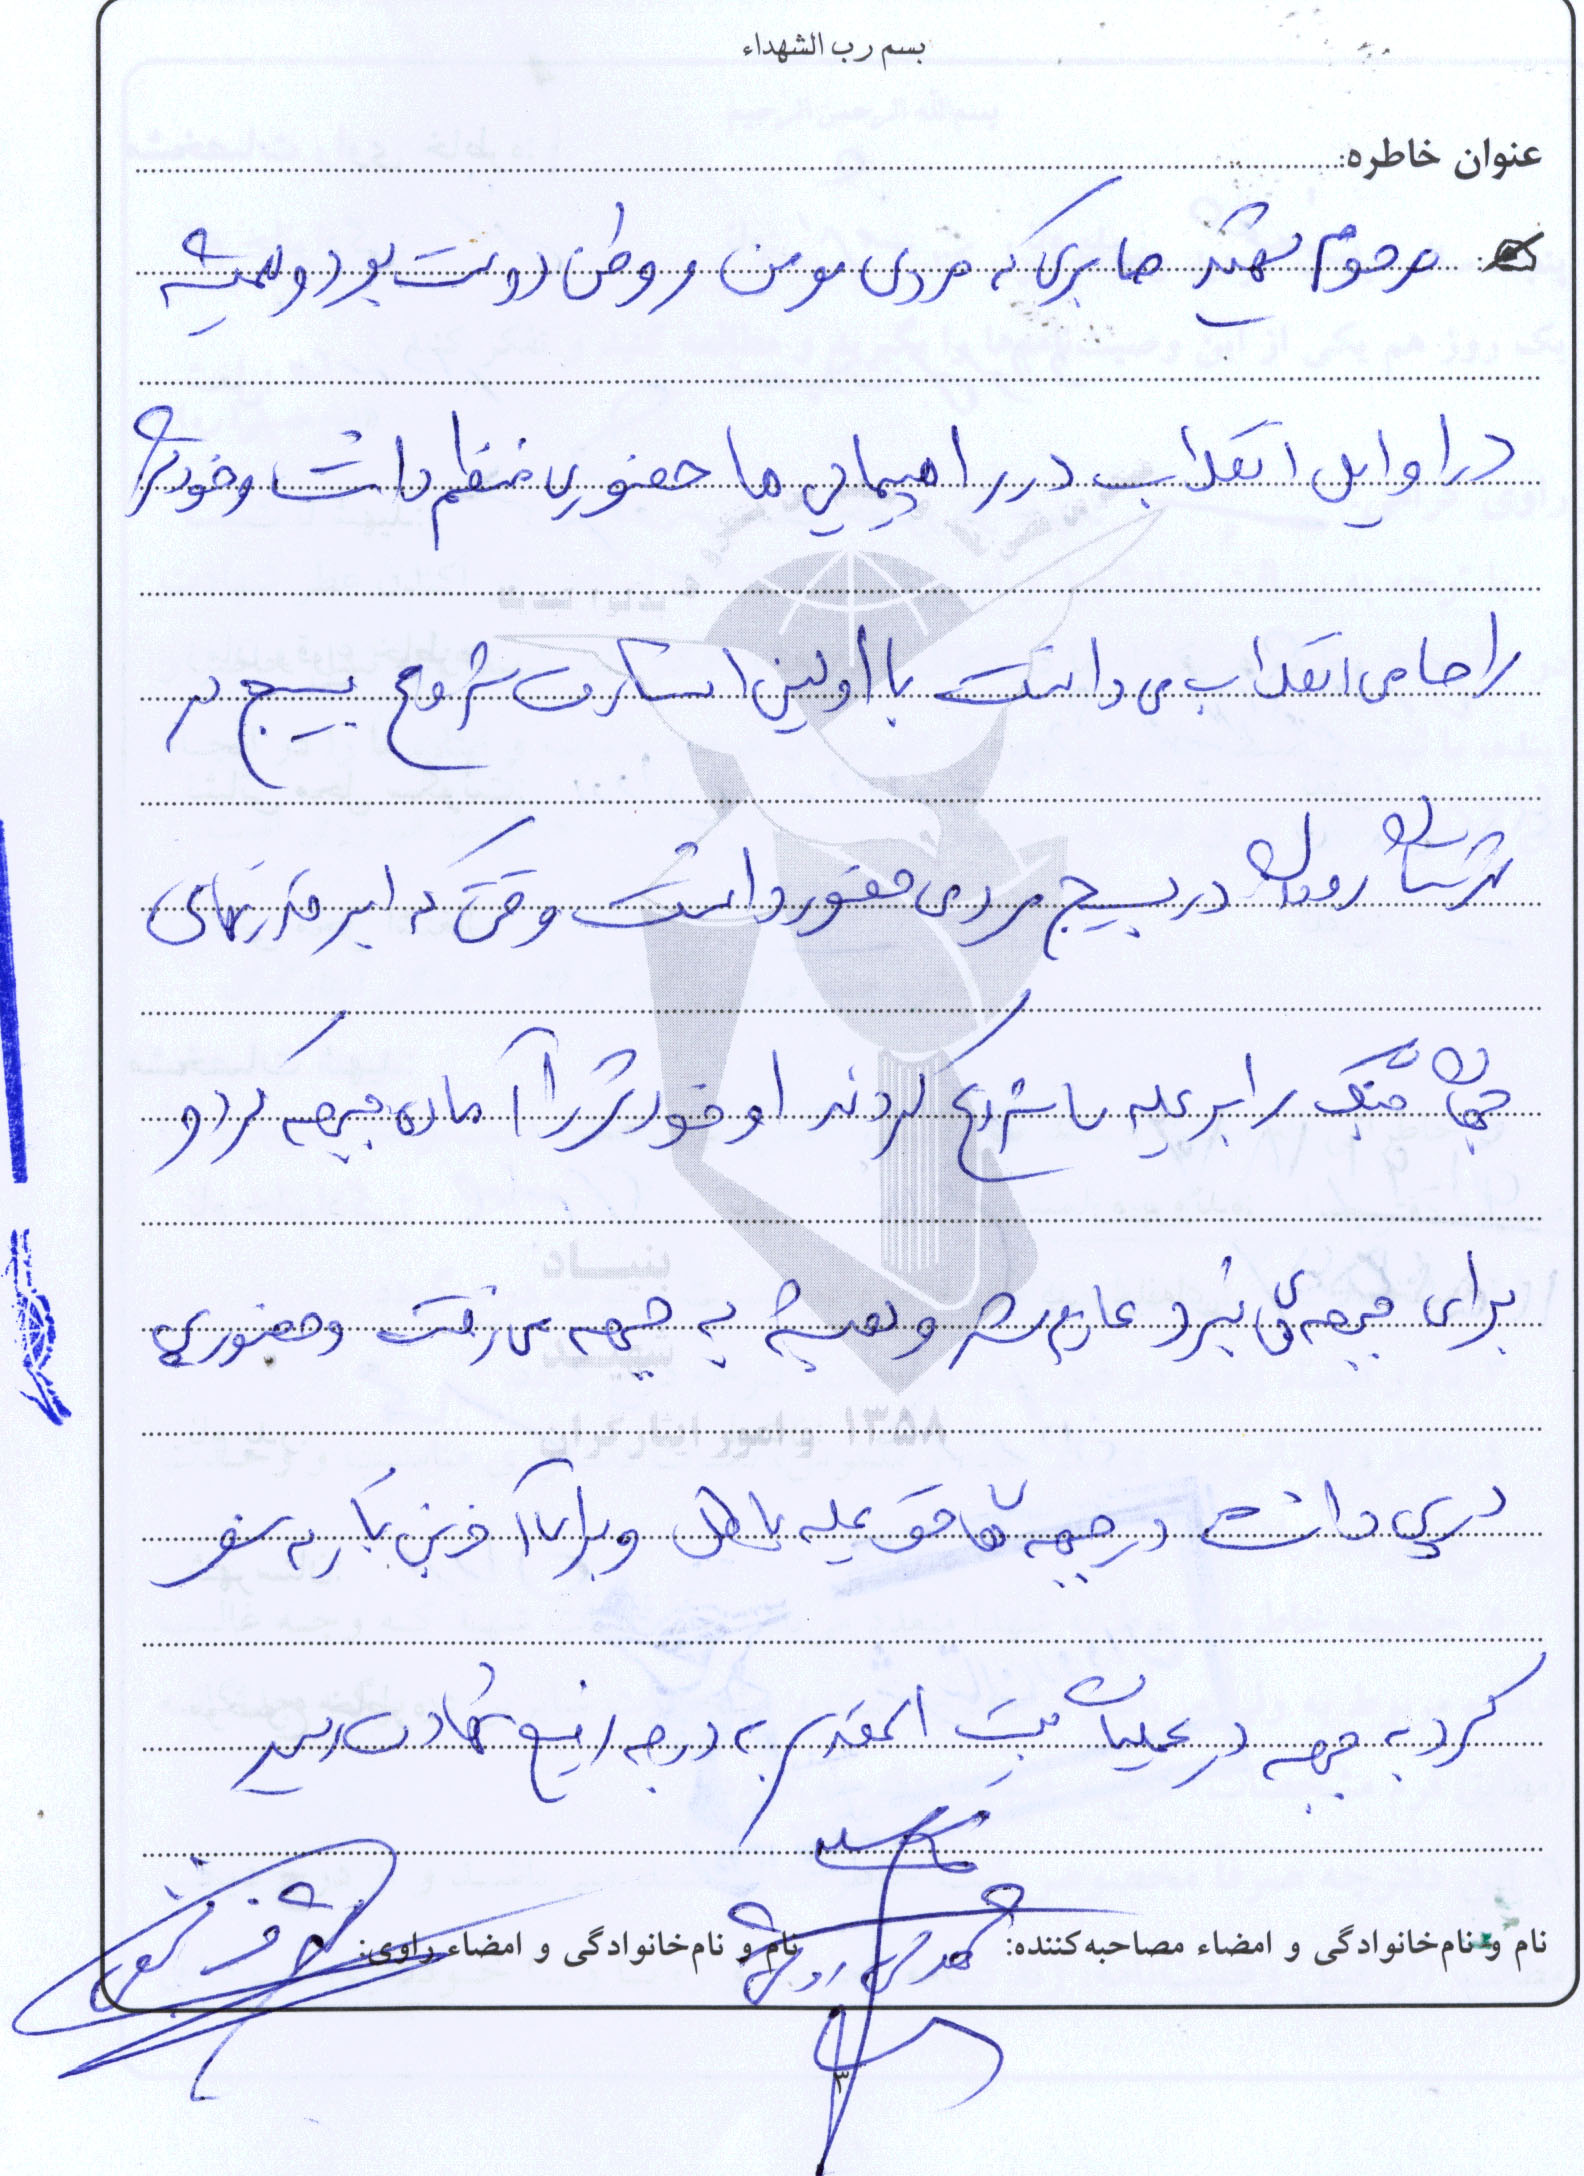 بسم رب الشهداء
عنوان خاطره:
مرحوم شهید صابری که مردی مومن و وطن دوست بود و همیشه
در اوایل انقلاب در راهپیمایی ها حضوری منظم داشت و خودش
را حامی انقلاب می دانست با اولین استارت شروع بسیج در
شهرستان رودان در بسیج مردمی حضور داشت وقتی که ابر قدرتهای
جهان جنگ را بر علیه ما شروع کردند او خودش را آماده جبهه کرد و
برای جبهه ی نبرد عازم شد و همیشه به جبهه می رفت و حضوری
در پی داشت در جبهه های حق علیه باطل و برای آخرین بار که سفر
کرد به جبهه در عملیات بیت المقدس به درجه رفیع شهادت رسید
نام و نام‌خانوادگی و امضاء مصاحبه‌کننده:
نام و نام‌خانوادگی و امضاء راوی:
بنیاد
شهید
و امور ایثارگران ۱۳۵۸
۳